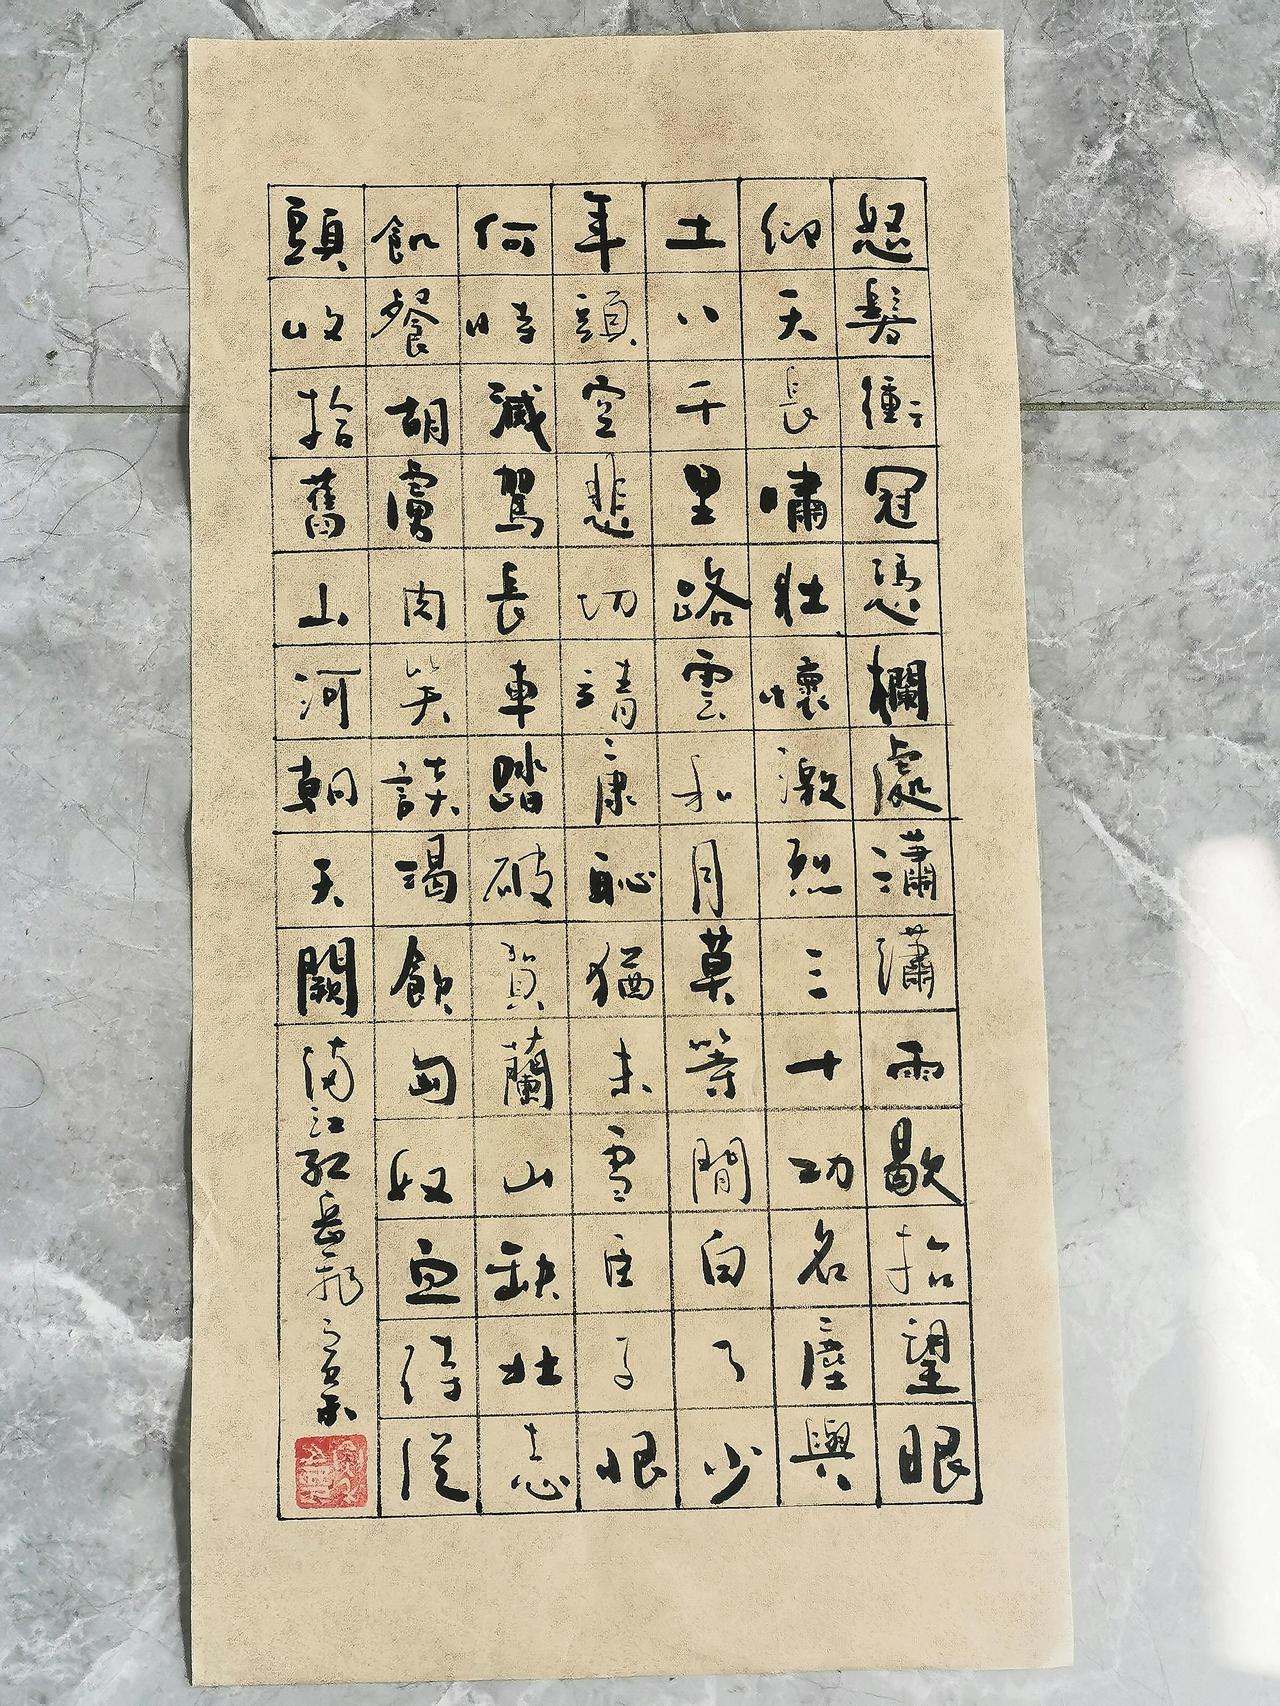 怒髮衝冠憑欄處瀟瀟雨歇抬望眼
仰天長嘯壯懷激烈三十功名塵與
土八千里路雲和月莫等閒白了少
年頭空悲切靖康恥猶未雪臣子恨
何時滅駕長車踏破賀蘭山缺壯志
飢餐胡虜肉笑談渴飲匈奴血待從
頭收拾舊山河朝天闕
滿江紅岳飛